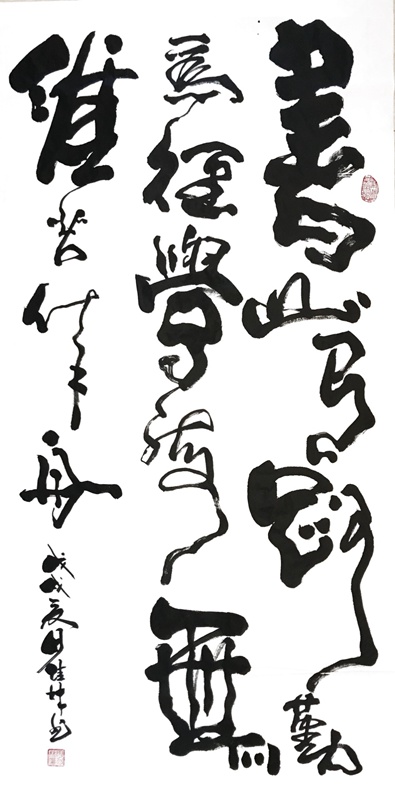 書山有路勤
為徑學海無
苦作舟
戊戌夏月